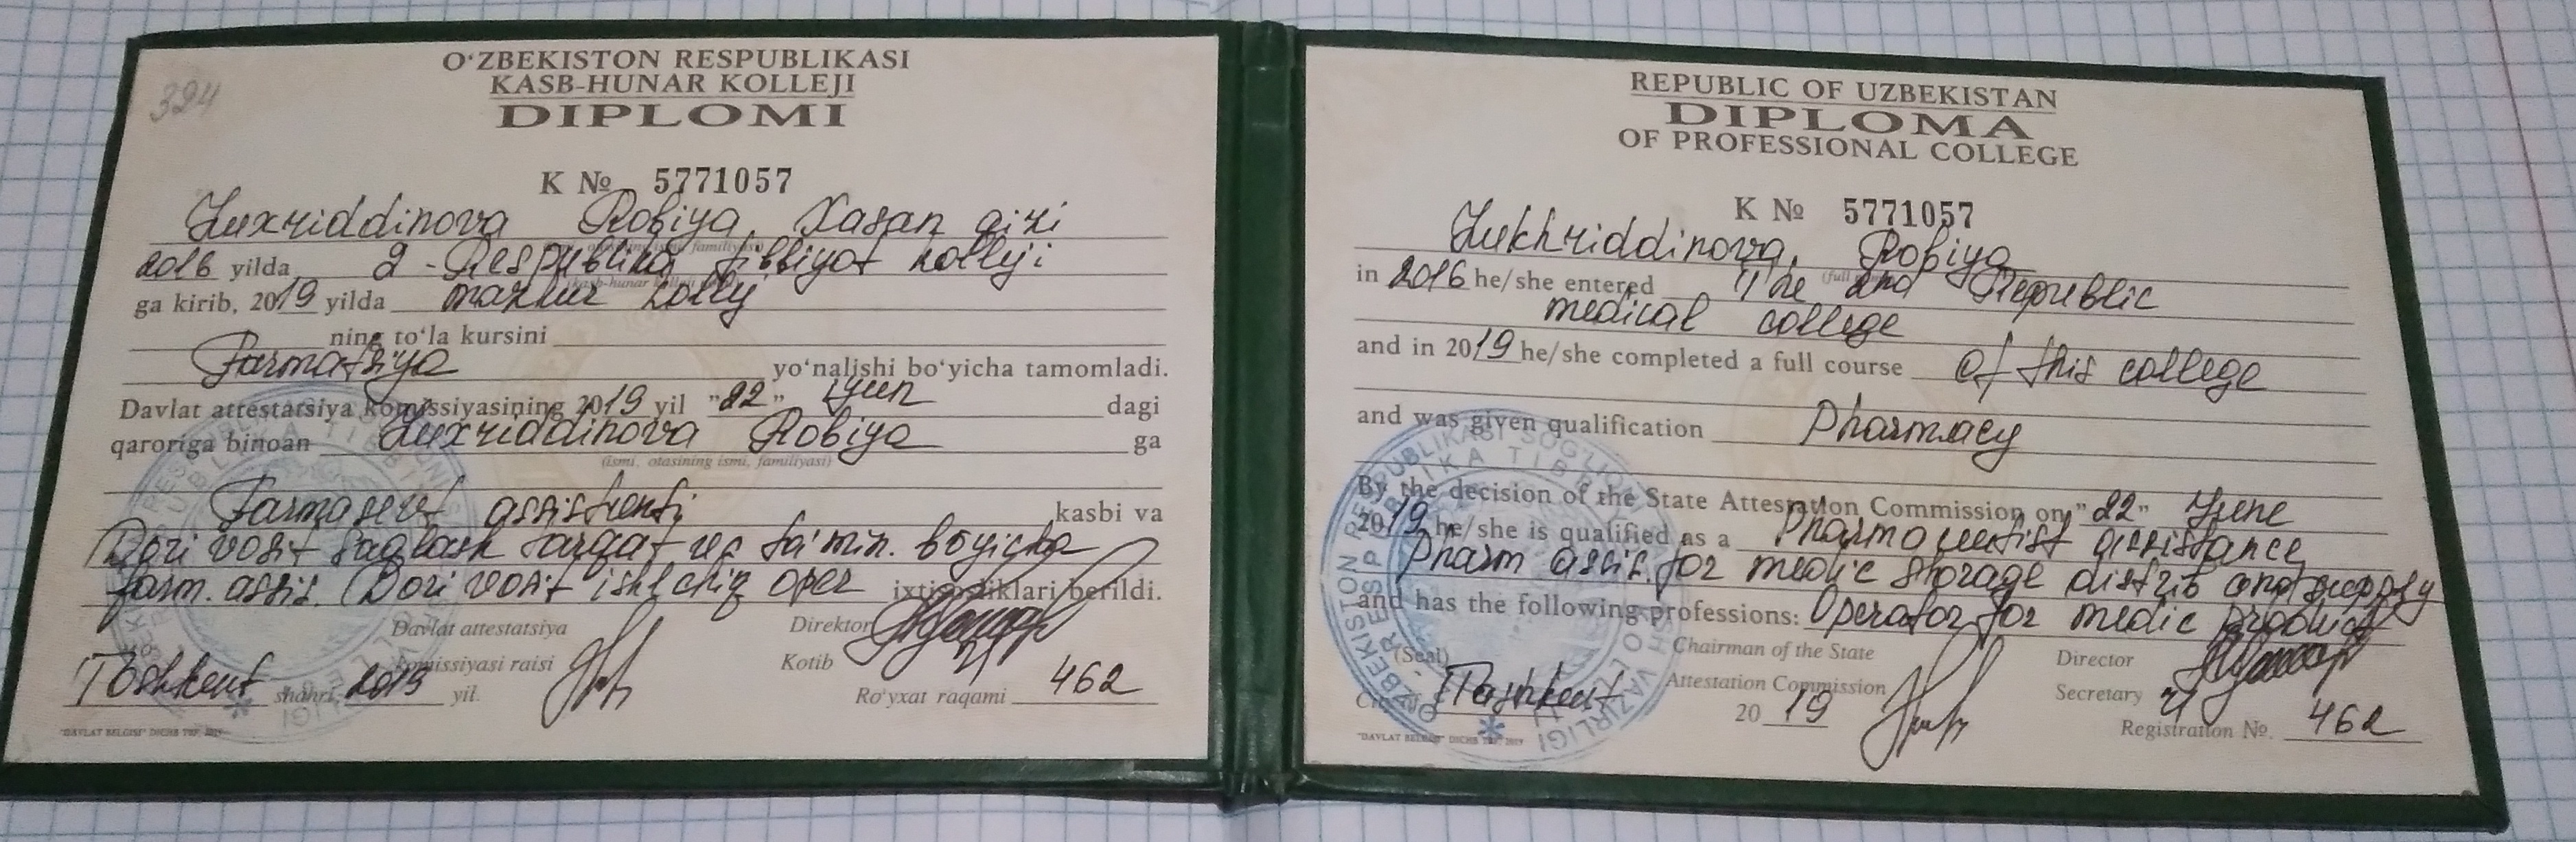 394
O‘ZBEKISTON RESPUBLIKASI
KASB-HUNAR KOLLEJI
DIPLOMI
K № 5771057
Zuxriddinova Robiya Xasan qizi
2016 yilda 2-Respublika tibbiyot kolleji
ga kirib, 2019 yilda mazkur kollej
ning to‘la kursini
Farmatsiya yo‘nalishi bo‘yicha tamomladi.
Davlat attestatsiya komissiyasining 2019 yil "22" iyun dagi
qaroriga binoan Zuxriddinova Robiya ga
(ismi, otasining ismi, familiyasi)
Farmasevt assistenti kasbi va
Dori vosit saqlash tarqat va ta'min. boyicha
farm. assis. Dori vosit ishlchiq oper ixtisosliklari berildi.
Davlat attestatsiya
komissiyasi raisi
Direktor
Kotib
Toshkent shahri, 2019 yil.
Ro‘yxat raqami 462
"DAVLAT BELGISI" DICHB
REPUBLIC OF UZBEKISTAN
DIPLOMA
OF PROFESSIONAL COLLEGE
K № 5771057
Zukhriddinova Robiya
in 2016 he/she entered The 2nd Republic
medical college
and in 2019 he/she completed a full course of this college
and was given qualification Pharmacy
By the decision of the State Attestation Commission on "22" June
2019 he/she is qualified as a Pharmaceutist assistance
Pharm assis. for medic storage distrib and supply
and has the following professions: Operator for medic product
(Seal)
Chairman of the State
Attestation Commission
Director
Secretary
Tashkent 2019
Registration №. 462
"DAVLAT BELGISI" DICHB